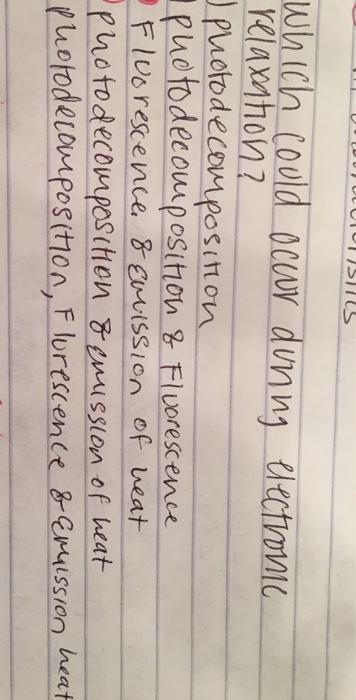 Which could occur during electronic
relaxation?
) photodecomposition
) photodecomposition & Fluorescence
) Fluorescence & emission of heat
) photodecomposition & emission of heat
photodecomposition, Flurescence & Emission heat